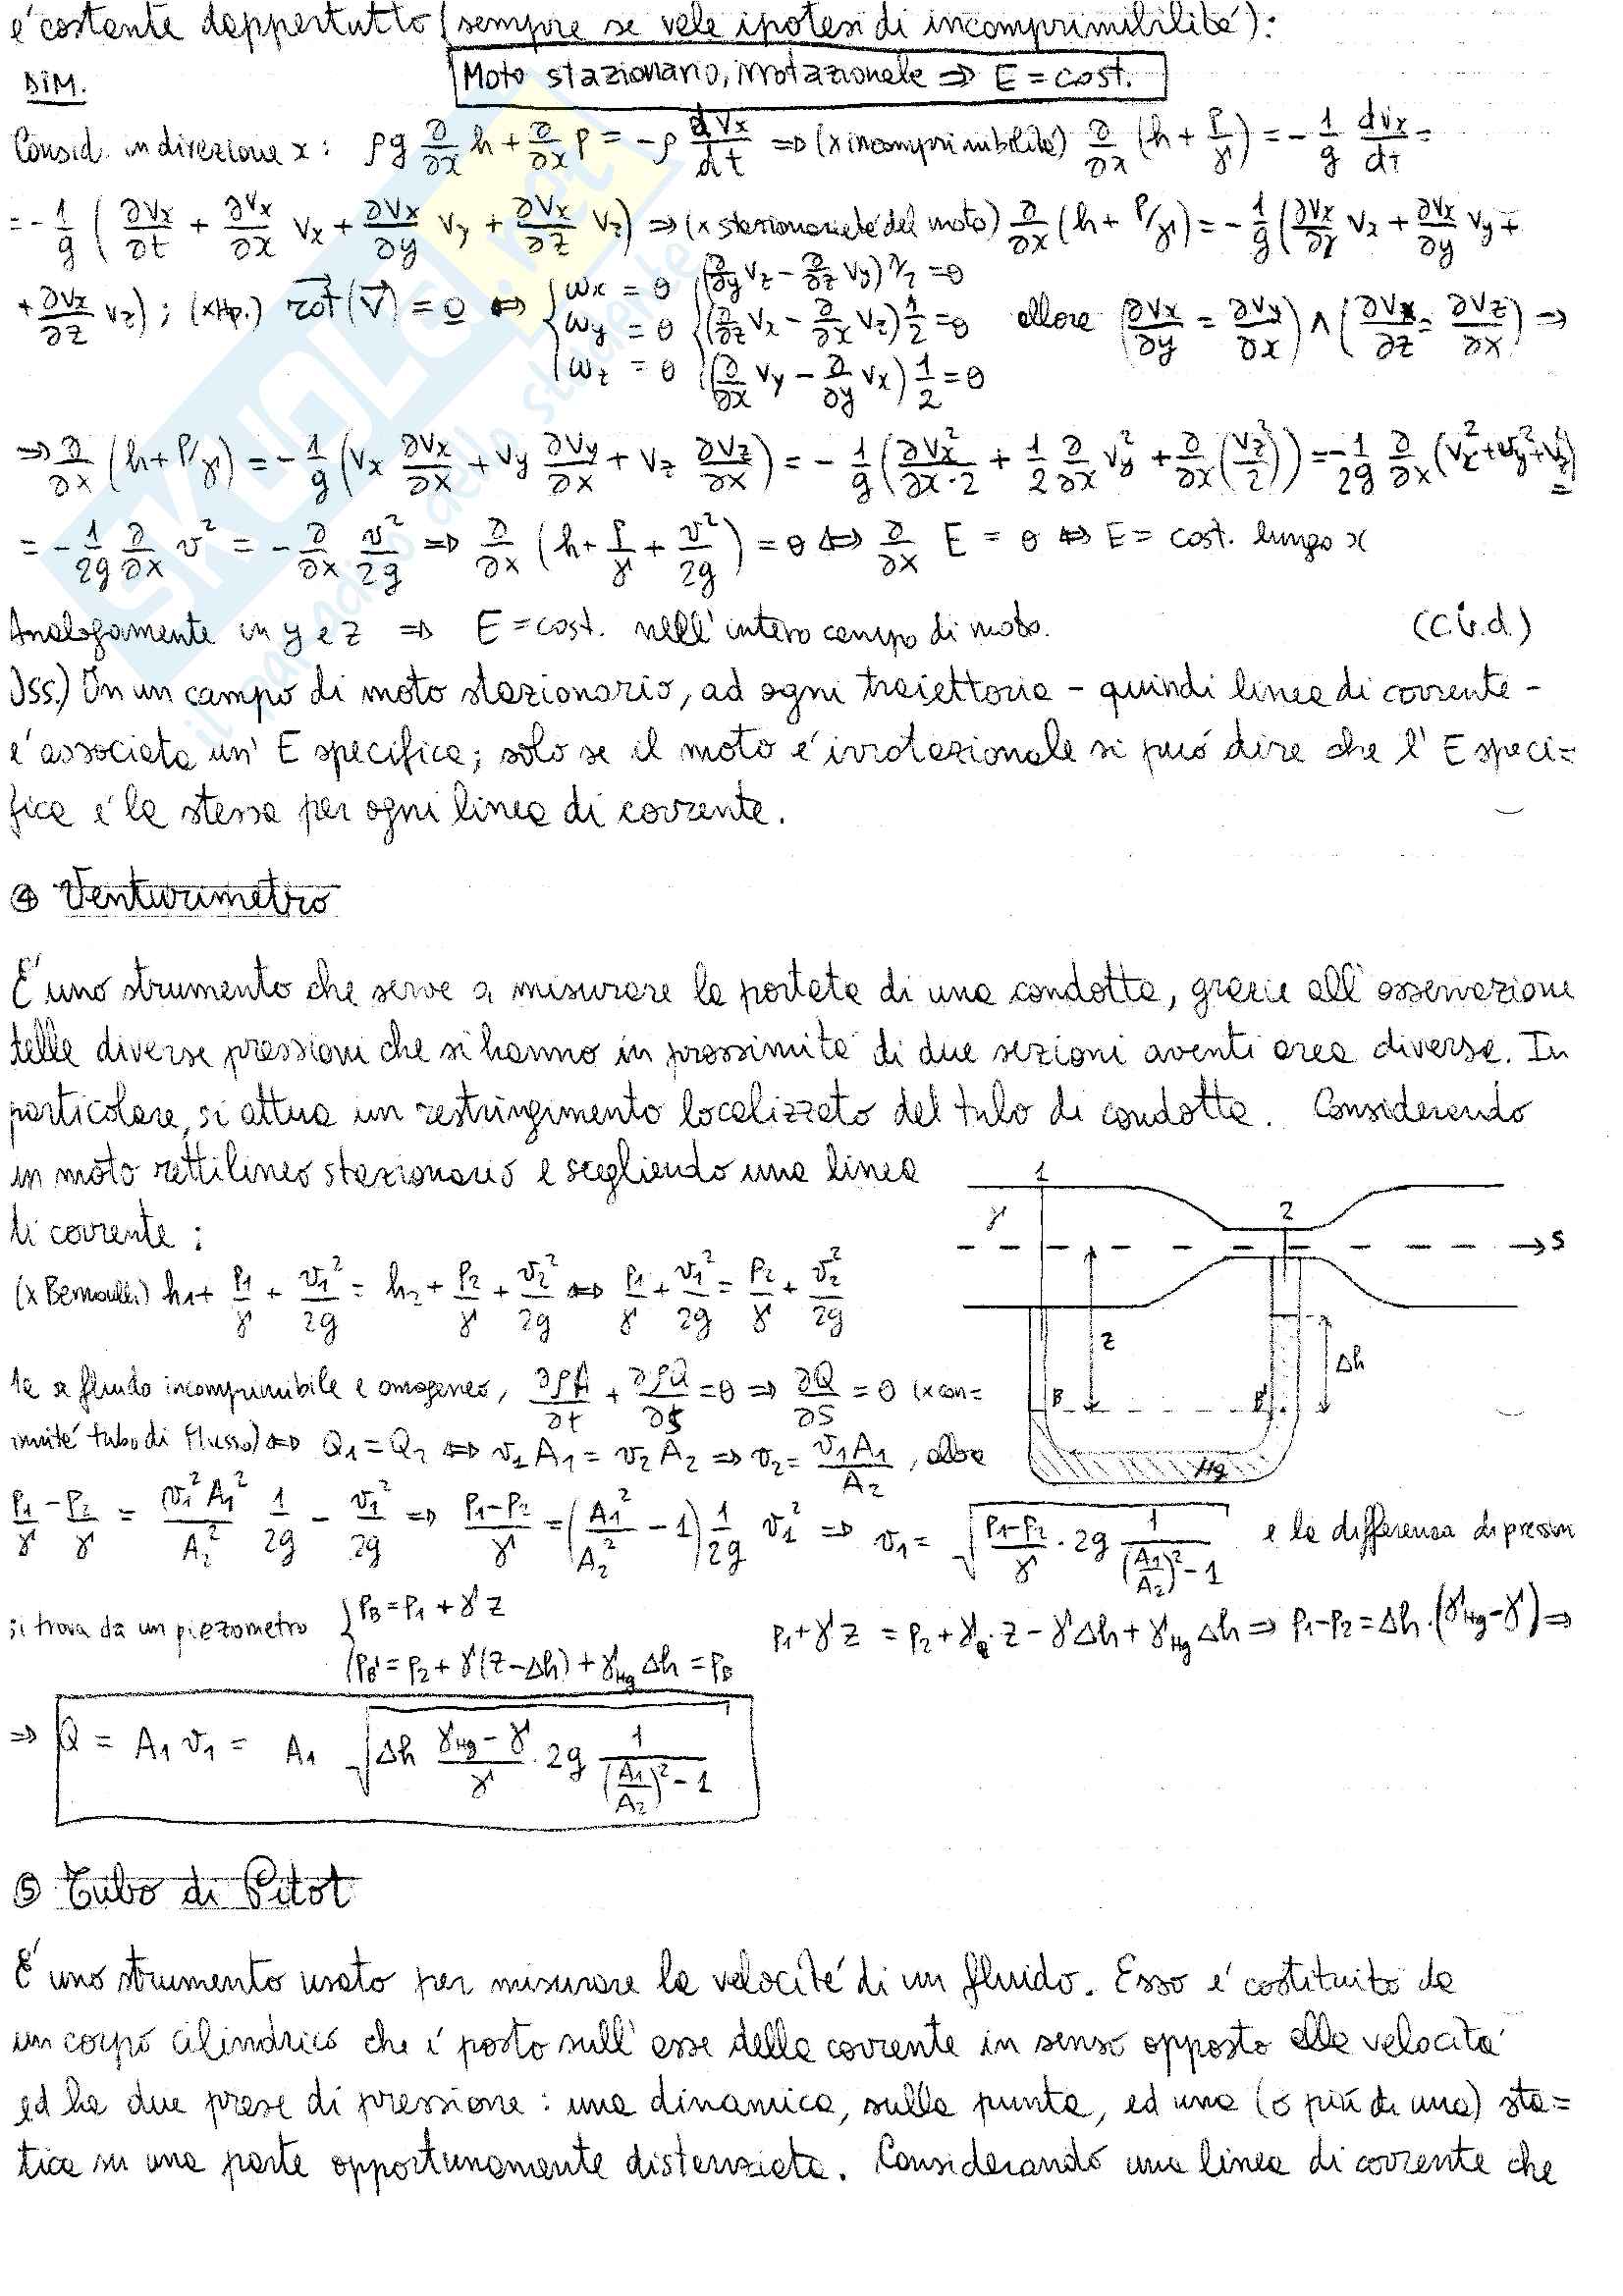 é costante dappertutto (sempre se vale ipotesi di incomprimibilità):
Moto stazionario, irrotazionale ⇒ E = cost.
DIM.
Consid. in direzione x: ρg ∂/∂x h + ∂/∂x p = -ρ dVx/dt ⇒ (x incomprimibilità) ∂/∂x (h + p/γ) = - 1/g dvx/dt =
= - 1/g (∂Vx/∂t + ∂Vx/∂x Vx + ∂Vx/∂y Vy + ∂Vx/∂z Vz) ⇒ (x stazionarietà del moto) ∂/∂x (h + P/γ) = - 1/g (∂Vx/∂x Vx + ∂Vx/∂y Vy +
+ ∂Vx/∂z Vz); (x Hp.) rot(V) = 0 ⇔ { ωx = 0 ωy = 0 ωz = 0 { (∂/∂y Vz - ∂/∂z Vy) 1/2 = 0 (∂/∂z Vx - ∂/∂x Vz) 1/2 = 0 (∂/∂x Vy - ∂/∂y Vx) 1/2 = 0 allora (∂Vx/∂y = ∂Vy/∂x) ∧ (∂Vx/∂z = ∂Vz/∂x) ⇒
⇒ ∂/∂x (h + P/γ) = - 1/g (Vx ∂Vx/∂x + Vy ∂Vy/∂x + Vz ∂Vz/∂x) = - 1/g (∂Vx²/∂x·2 + 1/2 ∂/∂x Vy² + ∂/∂x (Vz²/2)) = - 1/2g ∂/∂x (Vx² + Vy² + Vz²)
= - 1/2g ∂/∂x v² = - ∂/∂x v²/2g ⇒ ∂/∂x (h + p/γ + v²/2g) = 0 ⇔ ∂/∂x E = 0 ⇔ E = cost. lungo x
Analogamente in y e z ⇒ E = cost. nell'intero campo di moto. (C.v.d.)
Oss.) In un campo di moto stazionario, ad ogni traiettoria - quindi linea di corrente -
é associata un' E specifica; solo se il moto é irrotazionale si puó dire che l' E speci=
fica é la stessa per ogni linea di corrente.
④ Venturimetro
É uno strumento che serve a misurare la portata di una condotta, grazie all'osservazione
delle diverse pressioni che si hanno in prossimità di due sezioni aventi area diversa. In
particolare, si attua un restringimento localizzato del tubo di condotta. Considerando
un moto rettilineo stazionario e scegliendo una linea
di corrente:
1
γ
2
S
z
Δh
B
B'
Hg
(x Bernoulli) h1 + p1/γ + v1²/2g = h2 + p2/γ + v2²/2g ⇔ p1/γ + v1²/2g = p2/γ + v2²/2g
Ma se fluido incomprimibile e omogeneo, ∂ρA/∂t + ∂ρQ/∂s = 0 ⇒ ∂Q/∂s = 0 (x con=
tinuità tubo di flusso) ⇔ Q1 = Q2 ⇔ v1 A1 = v2 A2 ⇒ v2 = v1A1/A2, allora
p1/γ - p2/γ = v1² A1²/A2² 1/2g - v1²/2g ⇒ p1-p2/γ = (A1²/A2² - 1) 1/2g v1² ⇒ v1 = √(p1-p2/γ · 2g 1/((A1/A2)² - 1)) e la differenza di pression
si trova da un piezometro { pB = p1 + γz pB' = p2 + γ(z-Δh) + γHg Δh = pB p1 + γz = p2 + γ·z - γΔh + γHg Δh ⇒ p1-p2 = Δh·(γHg-γ) ⇒
⇒ Q = A1 v1 = A1 √(Δh γHg - γ/γ · 2g 1/((A1/A2)² - 1))
⑤ Tubo di Pitot
É uno strumento usato per misurare la velocità di un fluido. Esso é costituito da
un corpo cilindrico che é posto sull' asse della corrente in senso opposto alla velocità
ed ha due prese di pressione: una dinamica, sulla punta, ed una (o piú di una) sta=
tica su una parte opportunamente distanziata. Considerando una linea di corrente che